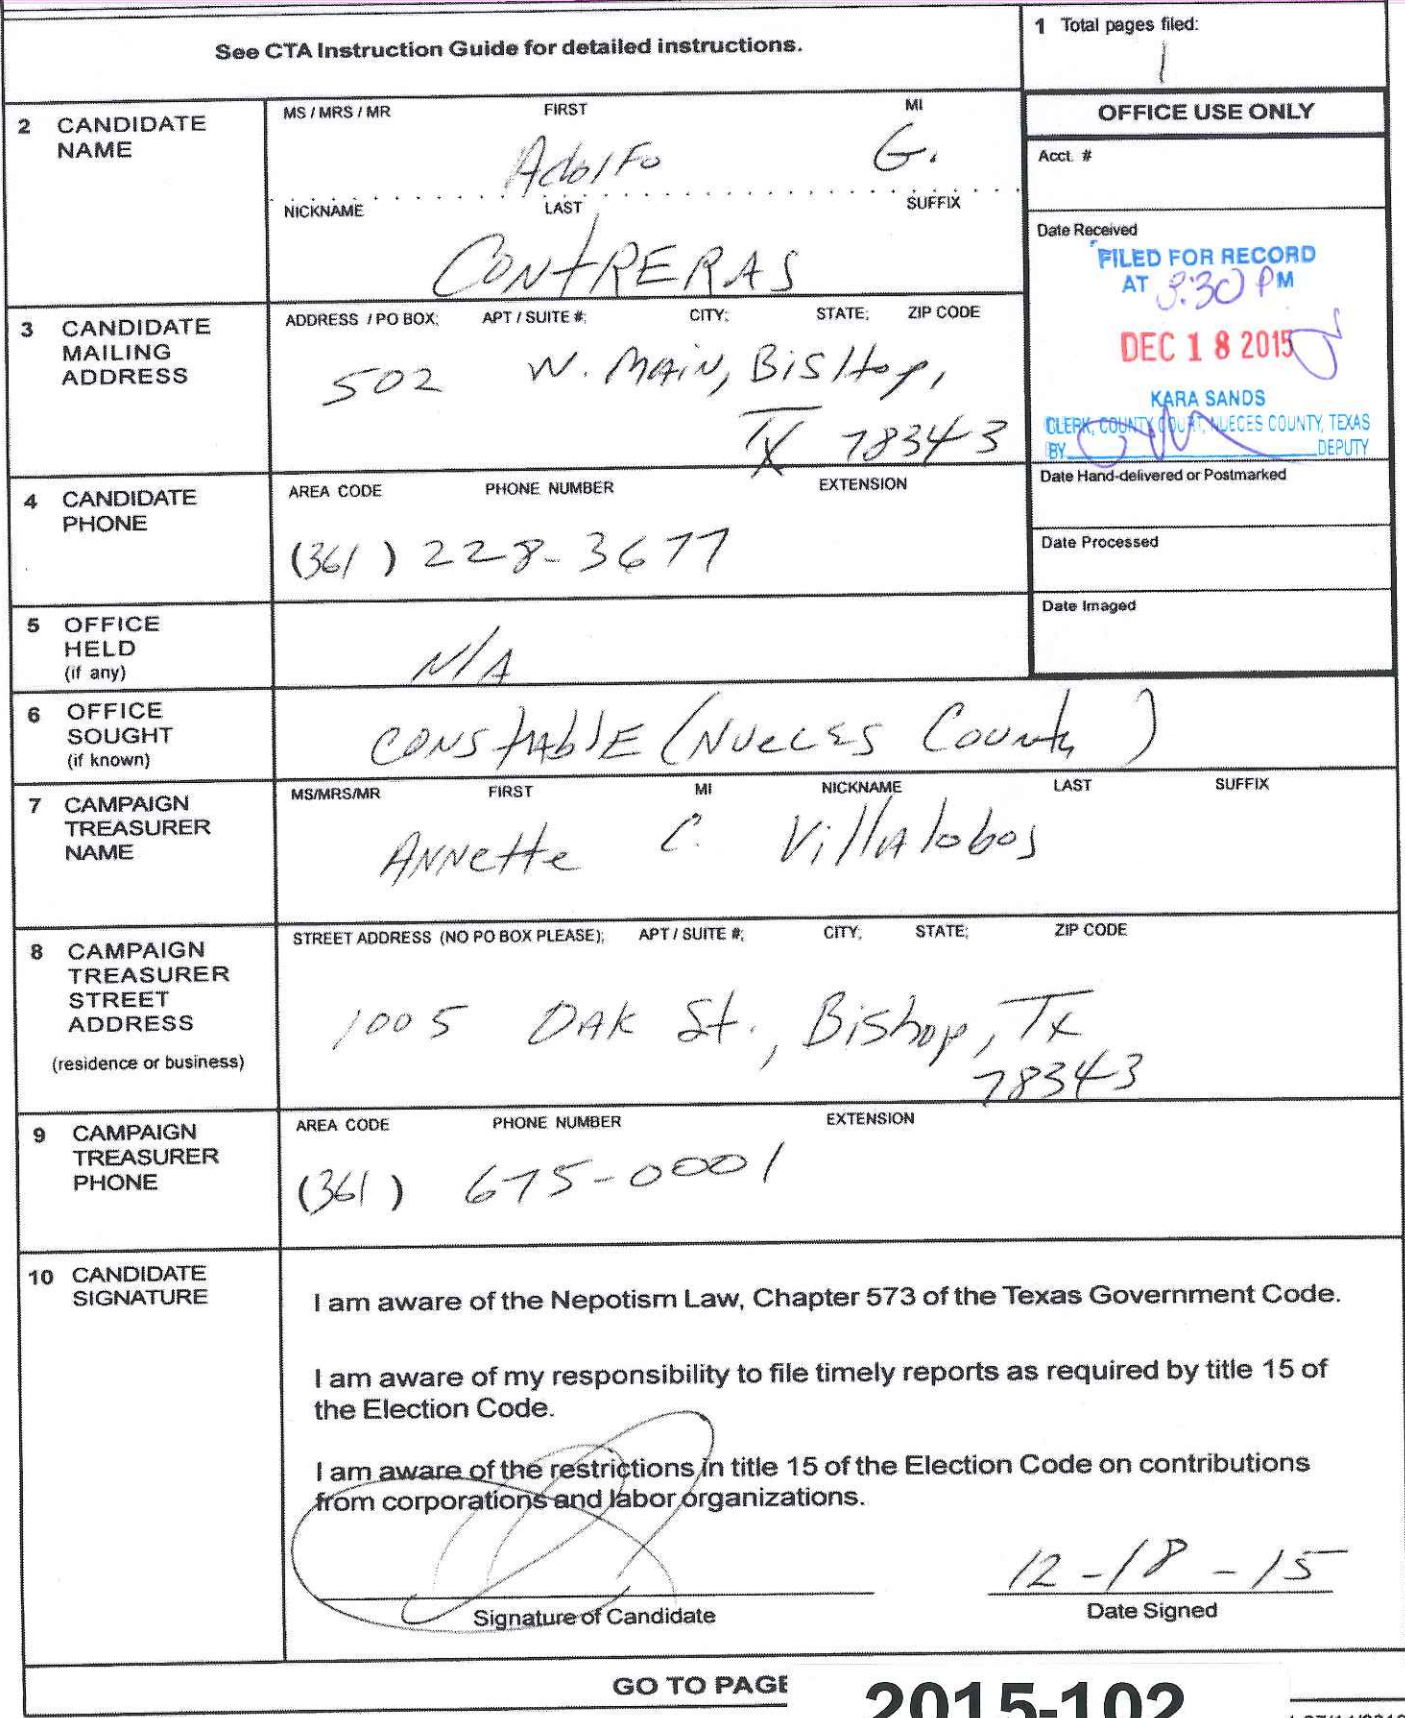 See CTA Instruction Guide for detailed instructions.
1 Total pages filed:
1
2 CANDIDATE NAME
MS / MRS / MR FIRST MI
Adolfo G.
NICKNAME LAST SUFFIX
CONTRERAS
OFFICE USE ONLY
Acct. #
Date Received
FILED FOR RECORD
AT 3:30 PM
DEC 18 2015
KARA SANDS
CLERK, COUNTY COURT, NUECES COUNTY, TEXAS
BY DEPUTY
Date Hand-delivered or Postmarked
Date Processed
Date Imaged
3 CANDIDATE MAILING ADDRESS
ADDRESS / PO BOX; APT / SUITE #; CITY; STATE; ZIP CODE
502 W. MAIN, BisHop,
TX 78343
4 CANDIDATE PHONE
AREA CODE PHONE NUMBER EXTENSION
(361) 228-3677
5 OFFICE HELD (if any)
N/A
6 OFFICE SOUGHT (if known)
CONSTABLE (NUECES County)
7 CAMPAIGN TREASURER NAME
MS/MRS/MR FIRST MI NICKNAME LAST SUFFIX
ANNette C. Villalobos
8 CAMPAIGN TREASURER STREET ADDRESS
(residence or business)
STREET ADDRESS (NO PO BOX PLEASE); APT / SUITE #; CITY; STATE; ZIP CODE
1005 OAK St., Bishop, Tx
78343
9 CAMPAIGN TREASURER PHONE
AREA CODE PHONE NUMBER EXTENSION
(361) 675-0001
10 CANDIDATE SIGNATURE
I am aware of the Nepotism Law, Chapter 573 of the Texas Government Code.
I am aware of my responsibility to file timely reports as required by title 15 of
the Election Code.
I am aware of the restrictions in title 15 of the Election Code on contributions
from corporations and labor organizations.
12-18-15
Signature of Candidate Date Signed
GO TO PAGE
2015-102